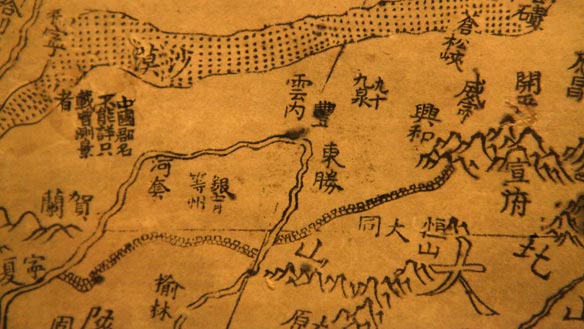 倉松峽
沙漠
開平
威寧
九十
九泉
雲內
豐
興和
中國郡名
不能詳只
載實測景
者
東勝
宣府
河套
等州
賀蘭
大同
恒山
北
大
山
寧夏
榆林
原